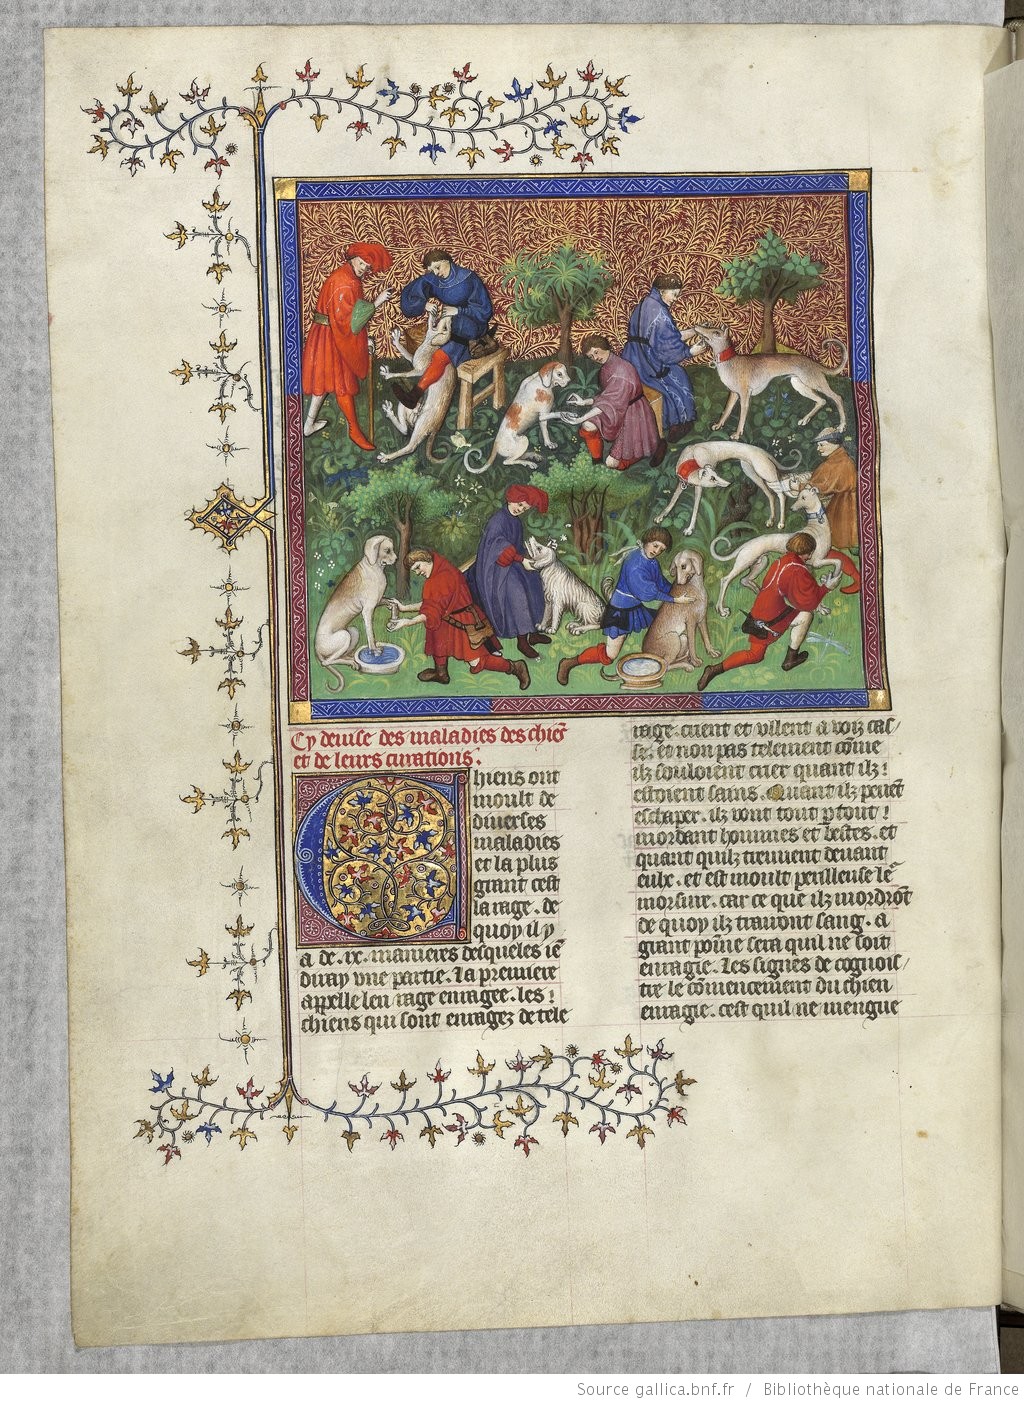 Cy deuise des maladies des chiẽs
et de leurs curations.
Chiens ont
moult de
diuerses
maladies
et la plus
grant cest
la rage. de
quoy il y
a de .ix. manieres desqueles iẽ
diray vne partie. La premiere
appelle len rage enragee. les
chiens qui sont enragez de tele
rage. crient et vllent a voiz cas/
se. et non pas telement cõme
ilz souloient crier quant ilz
estoient sains. Quant ilz peuẽt
eschaper. ilz vont tout ꝑtout
mordant hommes et bestes. et
quant quilz treuuent deuant
eulx. et est moult perilleuse leᷣ
morsure. car ce que ilz mordrõt
de quoy ilz trairont sang. a
grant poine sera quil ne soit
enragie. Les signes de cognois/
tre le cõmencement du chien
enragie. cest quil ne mengue
Source gallica.bnf.fr / Bibliothèque nationale de France